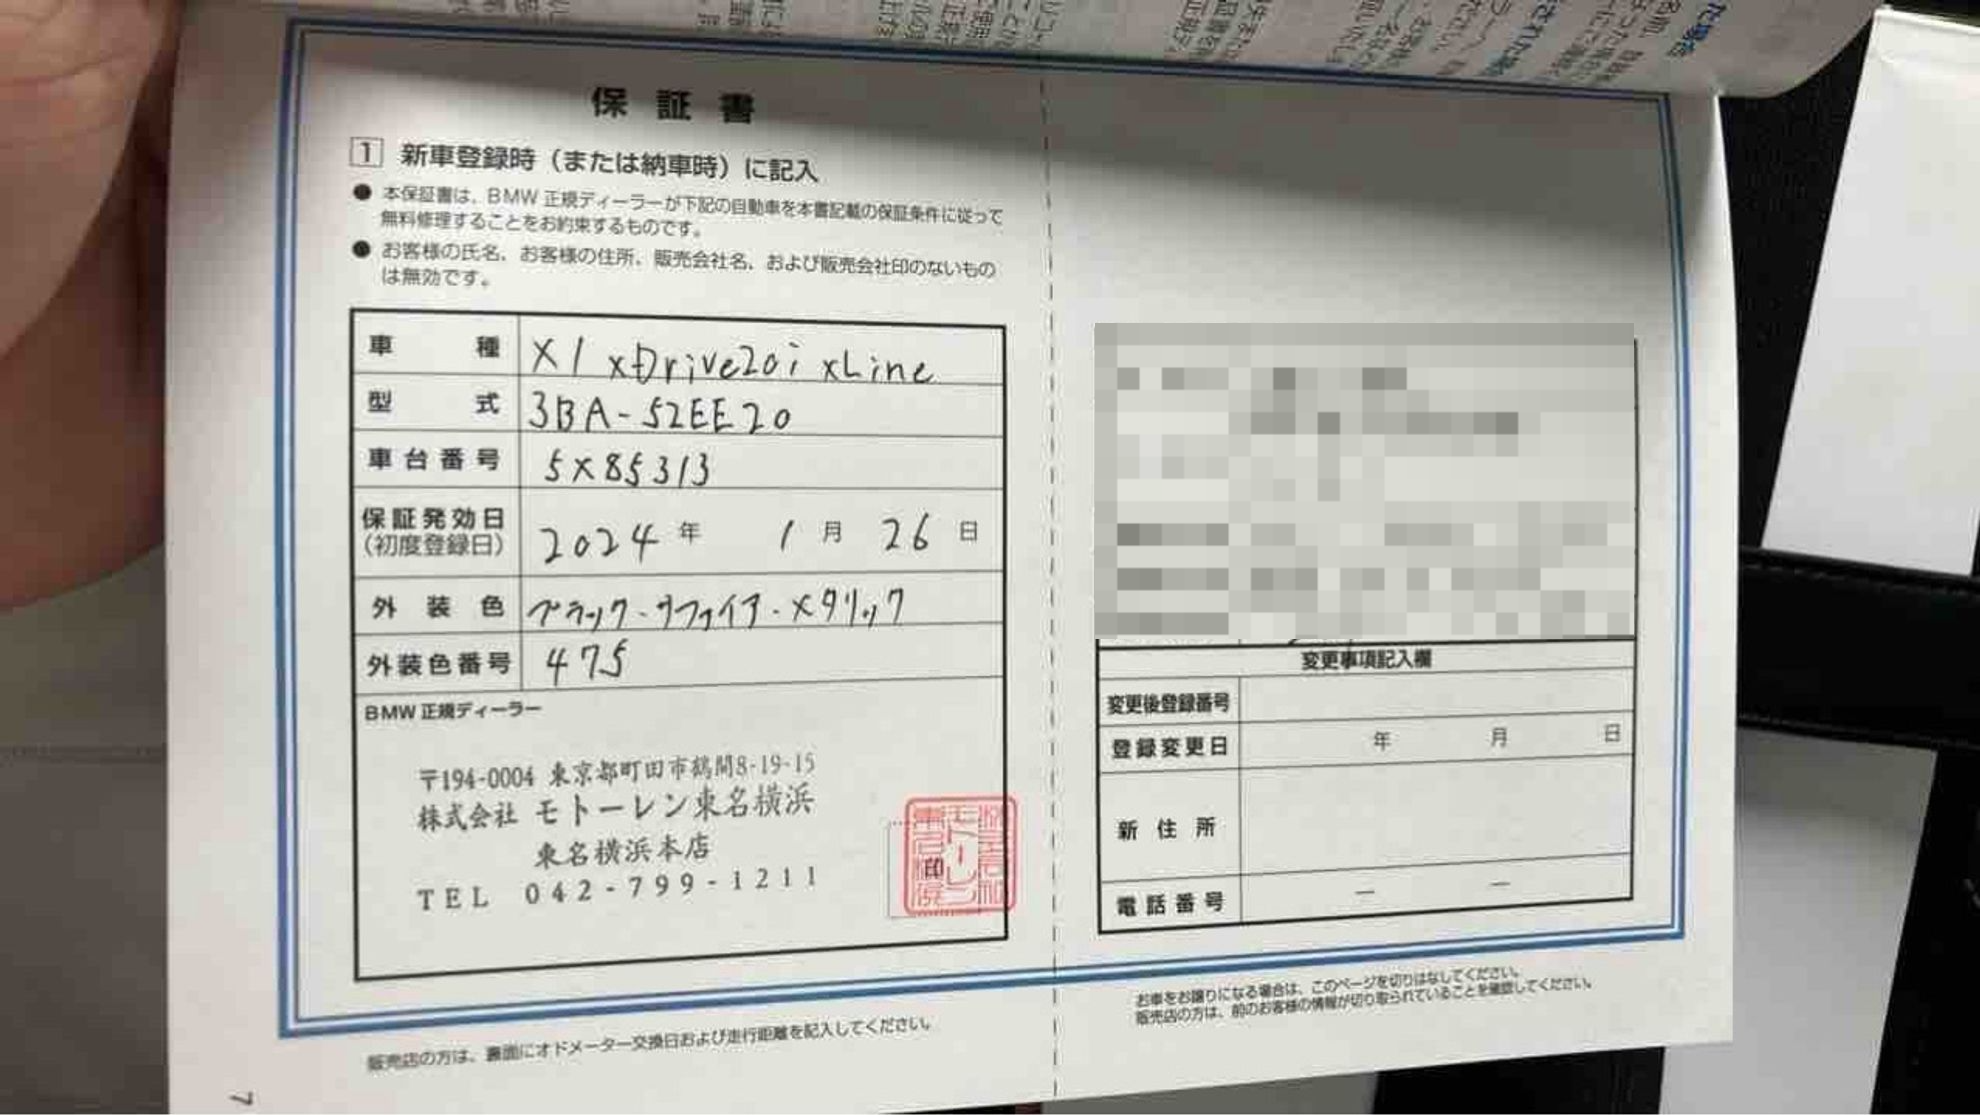 保証書
1 新車登録時(または納車時)に記入
● 本保証書は、BMW 正規ディーラーが下記の自動車を本書記載の保証条件に従って
無料修理することをお約束するものです。
● お客様の氏名、お客様の住所、販売会社名、および販売会社印のないもの
は無効です。
車種 X1 xDrive20i xLine
型式 3BA-52EE20
車台番号 5X85313
保証発効日 2024年 1月 26日
(初度登録日)
外装色 ブラック・サファイア・メタリック
外装色番号 475
BMW 正規ディーラー
〒194-0004 東京都町田市鶴間8-19-15
株式会社 モトーレン東名横浜
東名横浜本店
TEL 042-799-1211
印
販売店の方は、裏面にオドメーター交換日および走行距離を記入してください。
7
変更事項記入欄
変更後登録番号
登録変更日 年 月 日
新住所
電話番号 — —
お車をお譲りになる場合は、このページを切りはなしてください。
販売店の方は、前のお客様の情報が切り取られていることを確認してください。